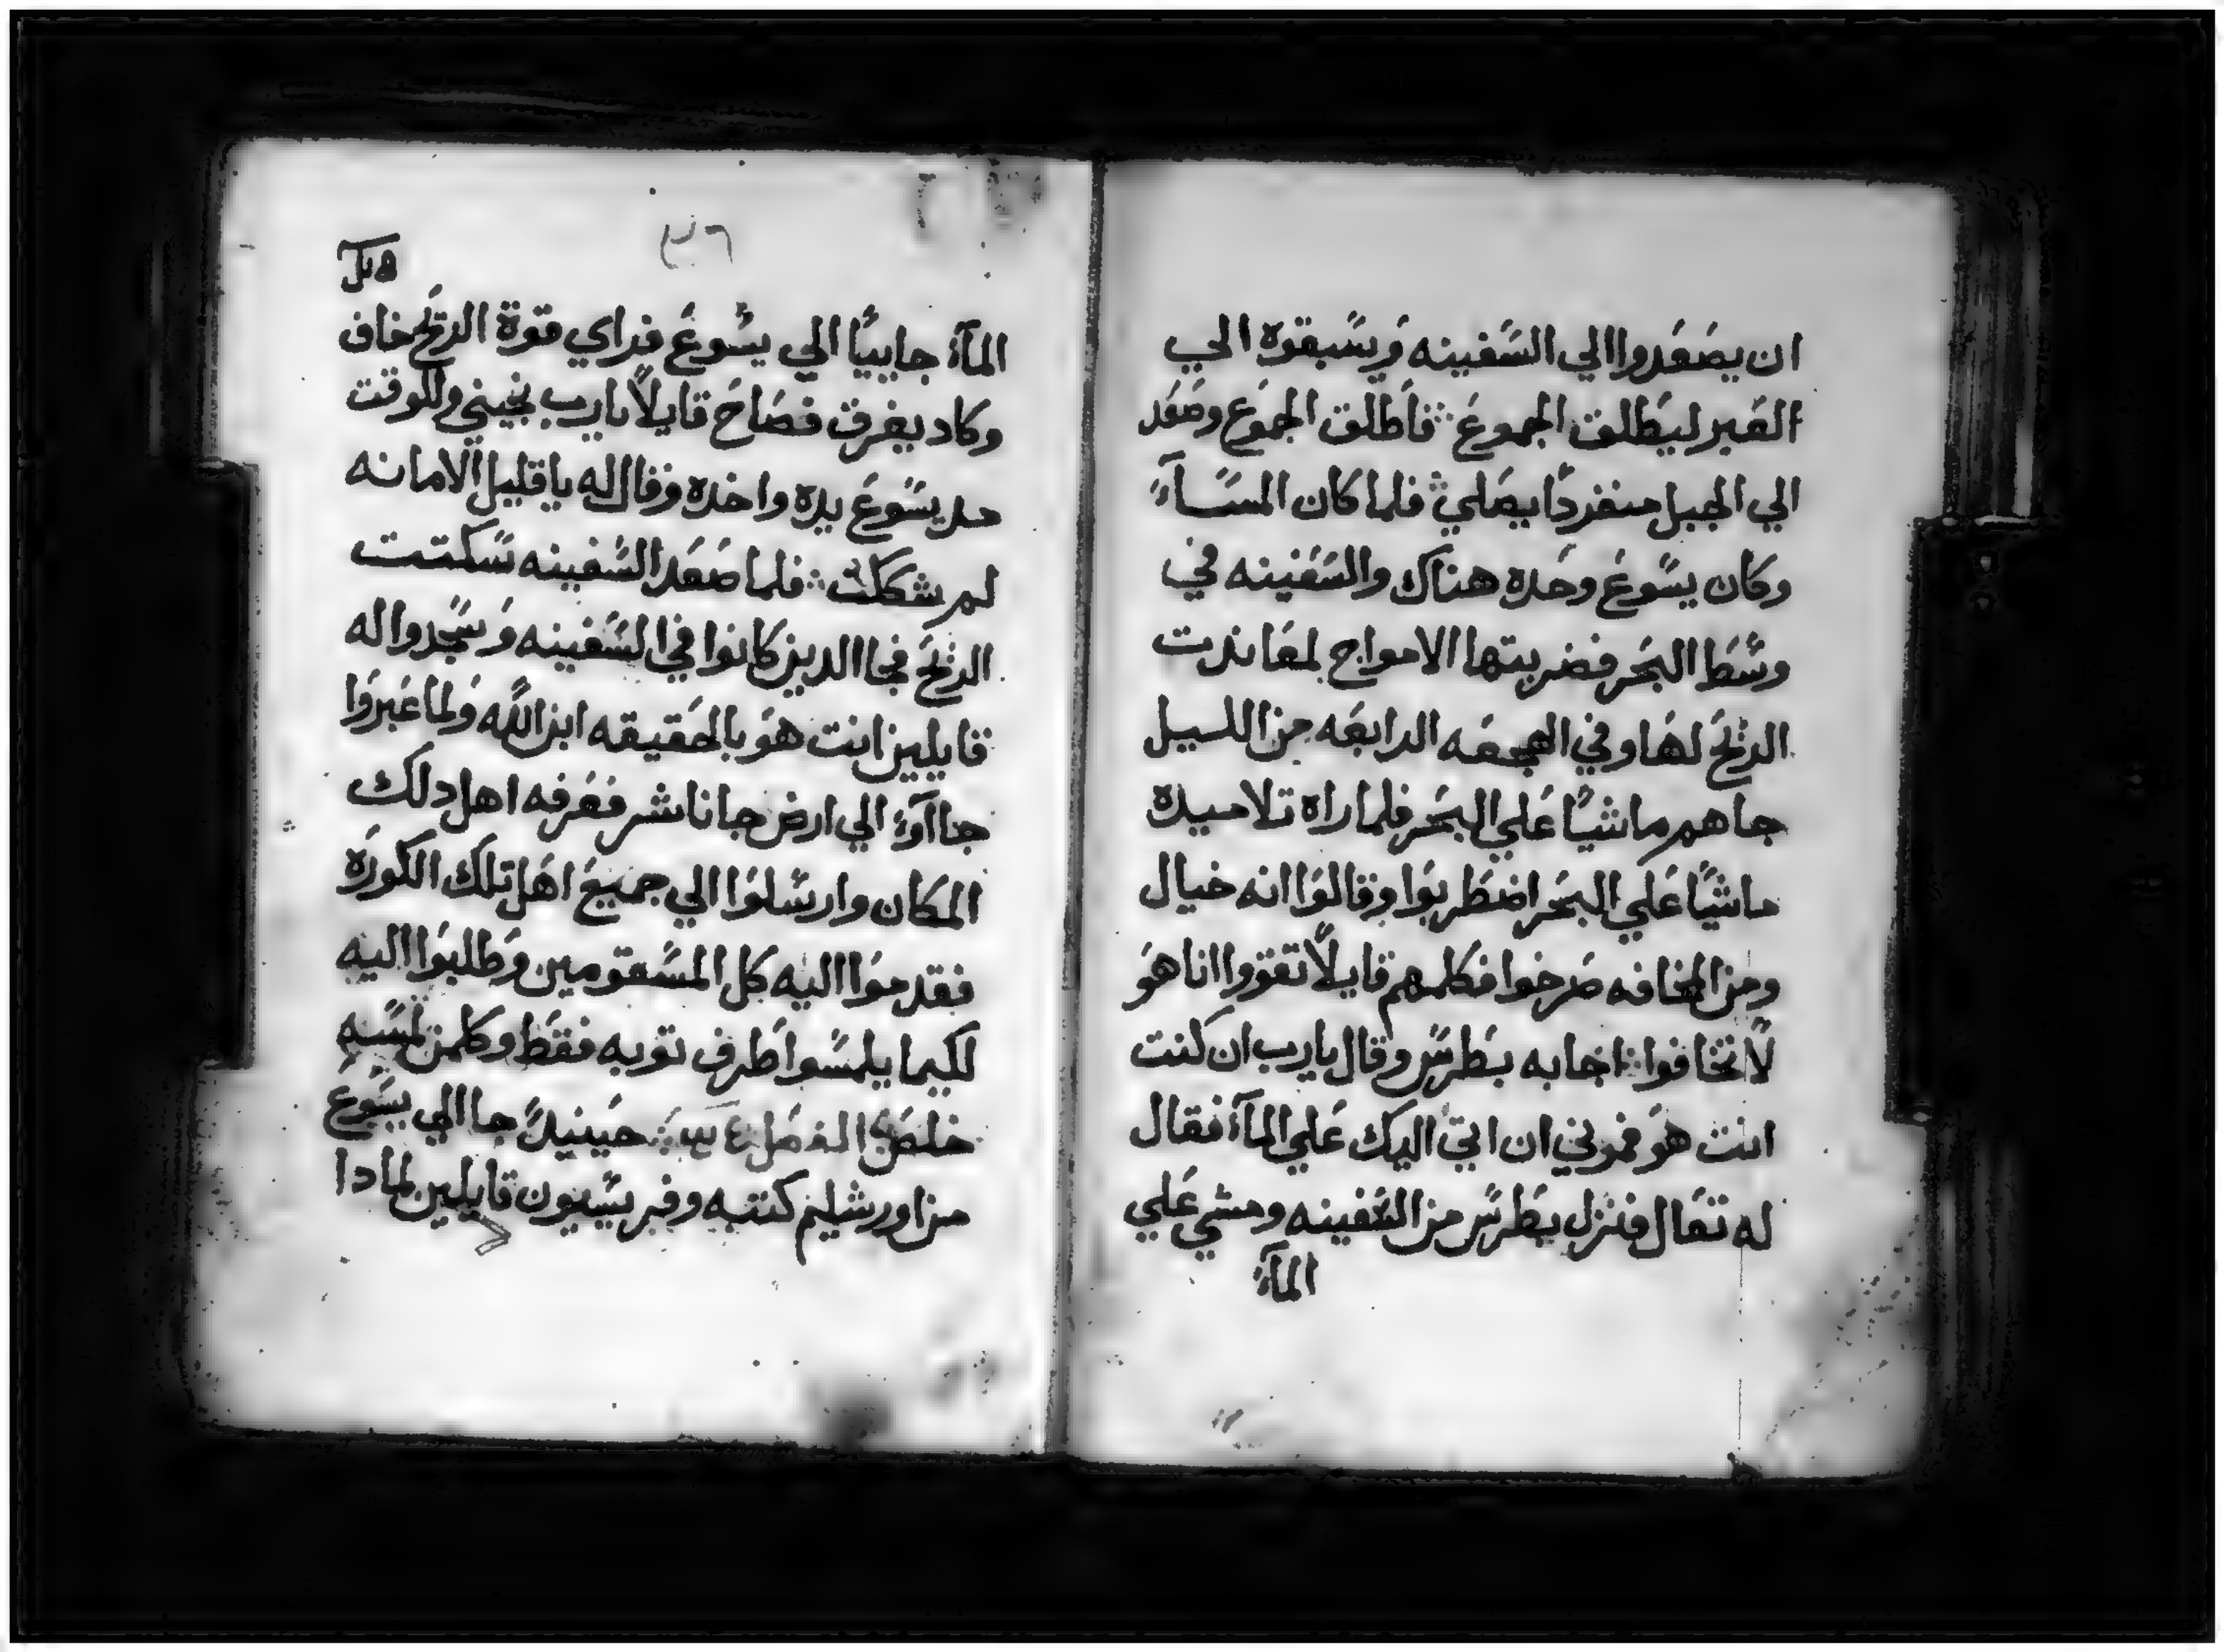 ان يصعدوا الي السفينه ويسبقوه الي
العبر ليطلق الجموع فاطلق الجموع وصعد
الي الجبل منفردًا يصلي فلما كان المسآء
وكان يسوع وحده هناك والسفينه في
وسط البحر فضربتها الامواج لمعاندت
الريح لها وفي الهجعه الرابعه من الليل
جاهم ماشيًا علي البحر فلما راه تلاميده
ماشيًا علي البحر اضطربوا وقالوا انه خيال
ومن المخافه صرخوا فكلمهم قايلًا تقووا انا هو
لا تخافوا اجابه بطرس وقال يارب ان كنت
انت هو فمرني ان اتي اليك علي المآء فقال
له تعال فنزل بطرس من السفينه ومشي علي
المآء
٣٦
المآء جاييًا الي يسوع فراي قوة الريح خاف
وكاد يغرق فصاح قايلًا يارب نجيني وللوقت
مد يسوع يده واخده وقال له يا قليل الامانه
لم شككت فلما صعد السفينه سكتت
الريح فجا الدين كانوا في السفينه وسجدوا له
قايلين انت هو بالحقيقه ابن الله ولما عبروا
جاآوء الي ارض جاناشر فعرفه اهل دلك
المكان وارسلوا الي جميع اهل تلك الكوره
فقدموا اليه كل المسقومين وطلبوا اليه
لكيما يلمسوا طرف توبه فقط وكلمن لمسه
خلص الفصل حينيدً جا الي يسوع
من اورشليم كتبه وفريسيون قايلين لمادا